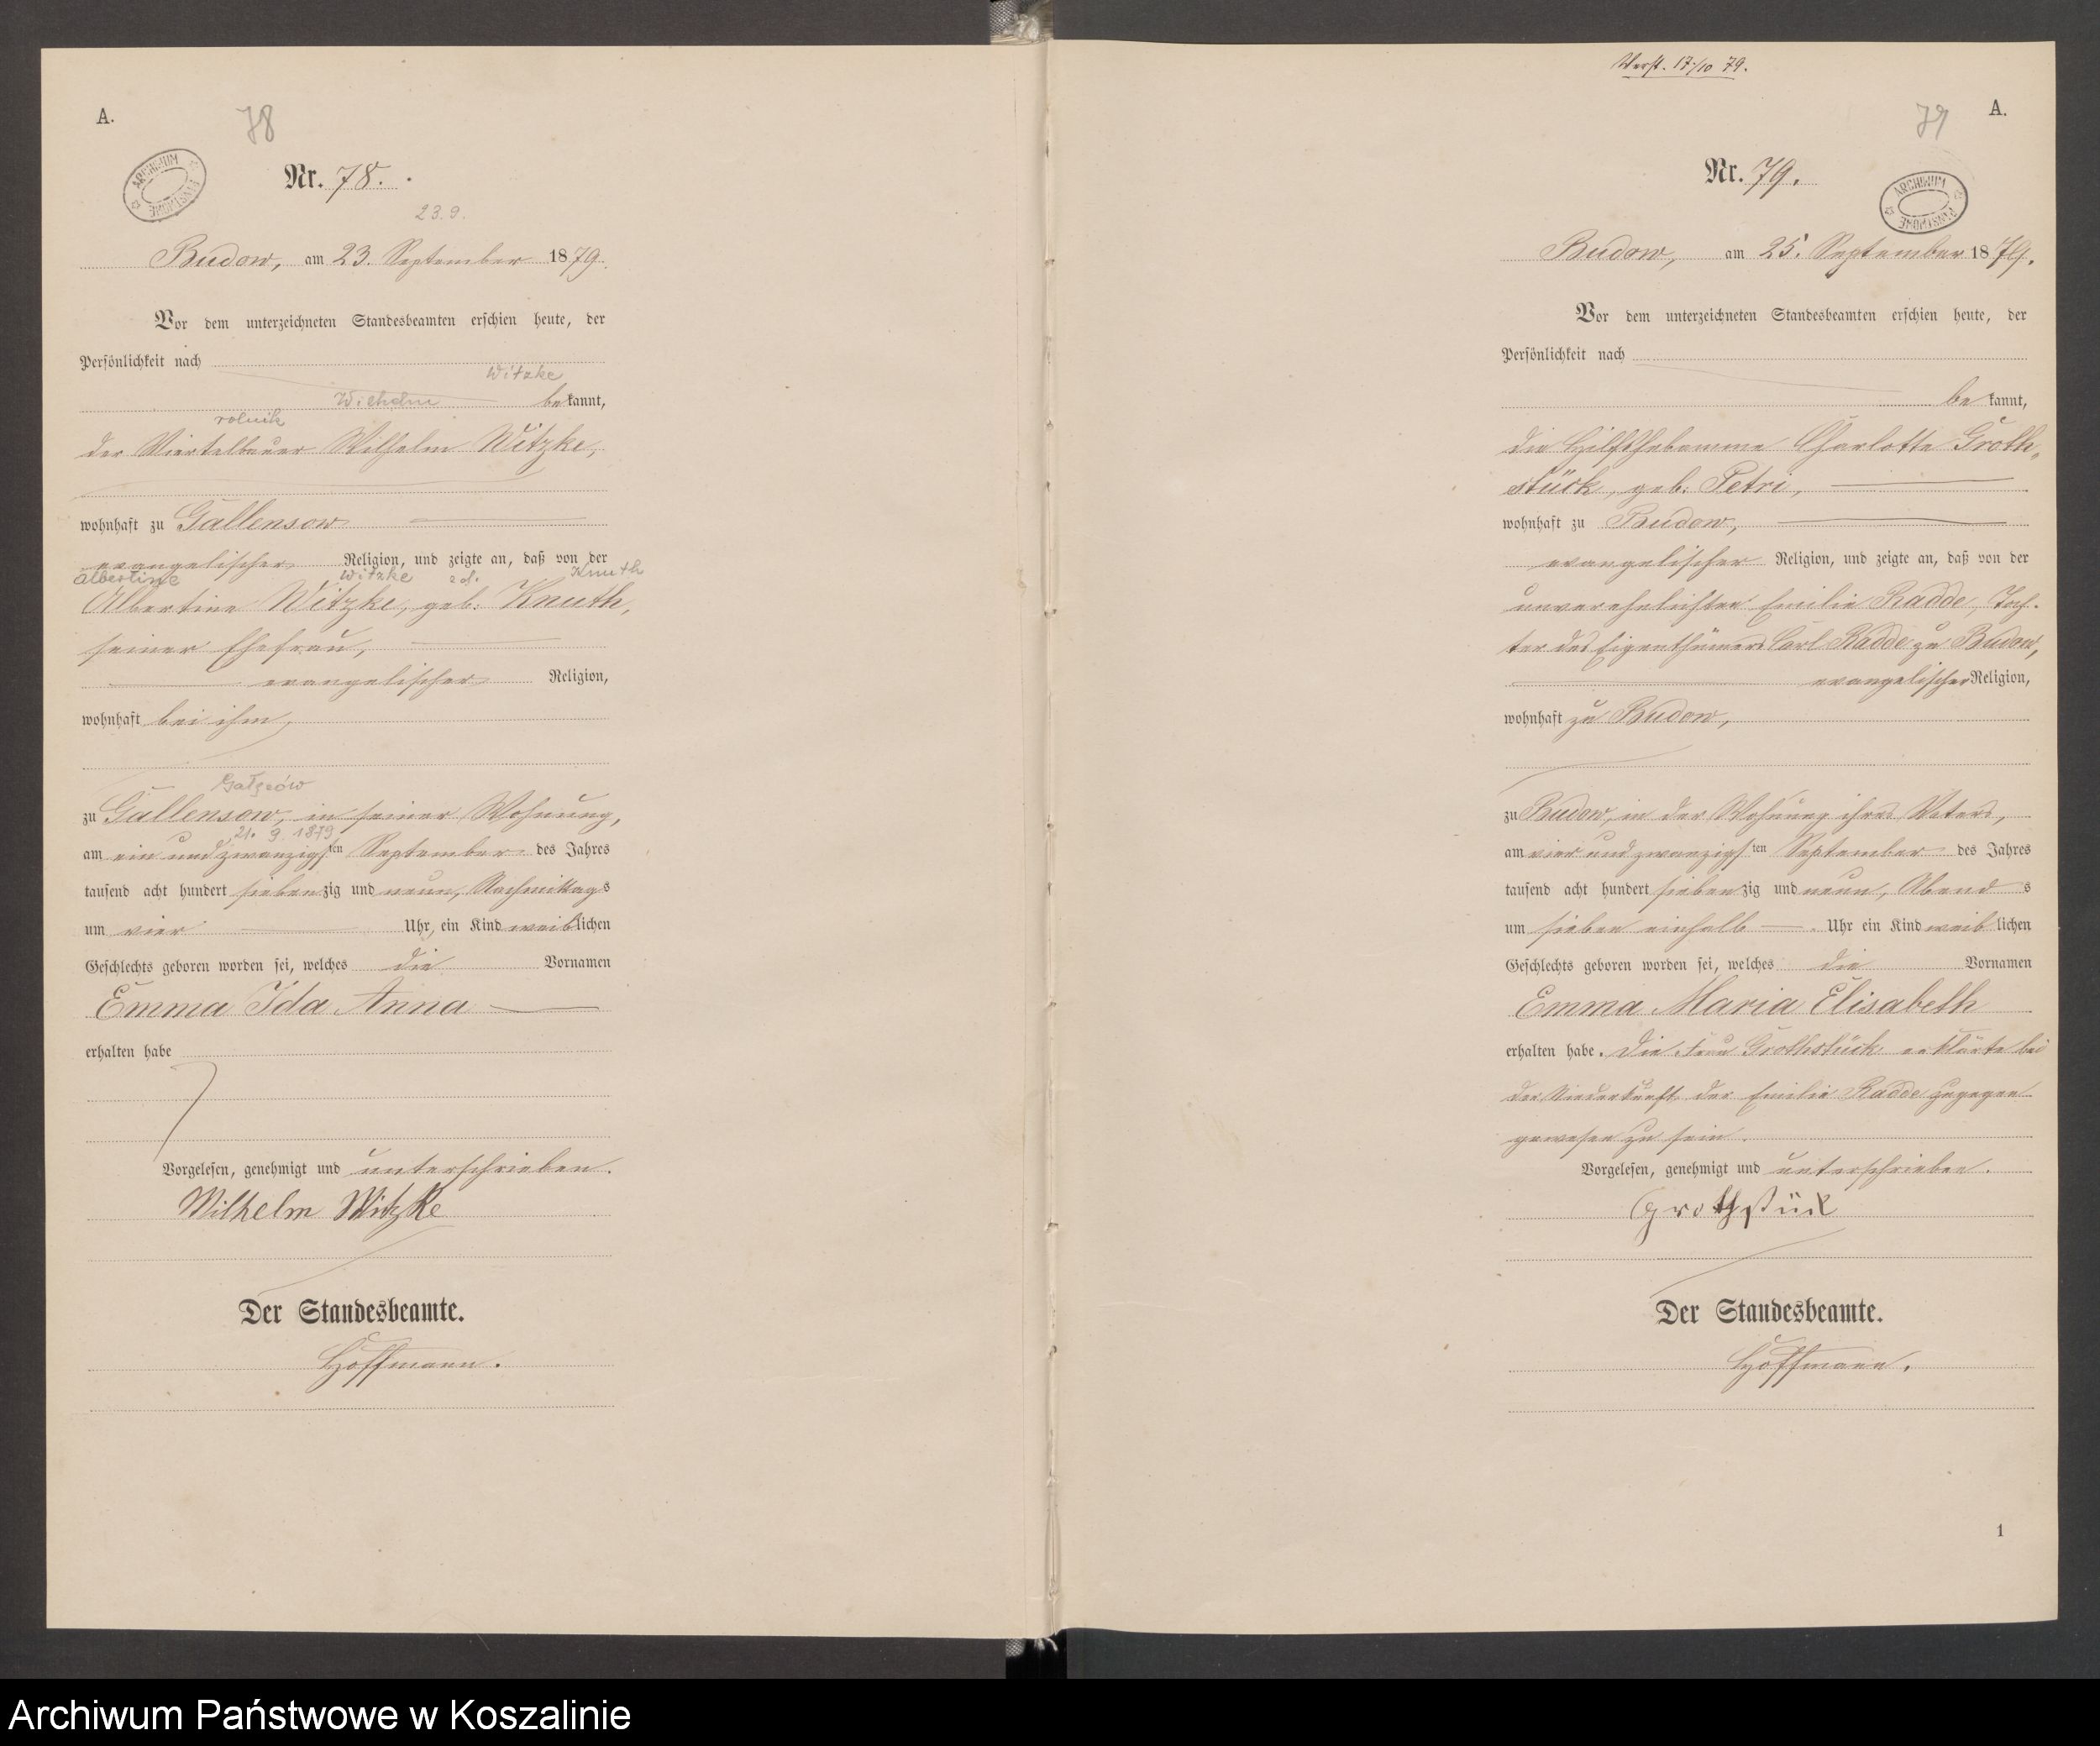 A.
78
ARCHIWUM PAŃSTWOWE
Nr. 78.
23.9.
Budow, am 23. September 1879.
Vor dem unterzeichneten Standesbeamten erschien heute, der
Persönlichkeit nach
Witzke
Wilhelm
bekannt,
rolnik
der Viertelbauer Wilhelm Witzke,
wohnhaft zu Gallensow
evangelischer Religion, und zeigte an, daß von der
Albertine Witzke zd. Knuth
Albertine Witzke, geb. Knuth,
seiner Ehefrau,
evangelischer Religion,
wohnhaft bei ihm,
zu Gallensow, in seiner Wohnung,
21. 9. 1879
am ein und zwanzigsten September des Jahres
tausend acht hundert siebenzig und neun, Nachmittags
um vier Uhr, ein Kind weiblichen
Geschlechts geboren worden sei, welches die Vornamen
Emma Ida Anna
erhalten habe
Vorgelesen, genehmigt und unterschrieben.
Wilhelm Witzke
Der Standesbeamte.
Hoffmann.
Verst. 17/10 79.
79
A.
Nr. 79.
ARCHIWUM PAŃSTWOWE
Budow, am 25. September 1879.
Vor dem unterzeichneten Standesbeamten erschien heute, der
Persönlichkeit nach
bekannt,
die Hilfshebamme Charlotte Groth-
stück, geb. Petri,
wohnhaft zu Budow,
evangelischer Religion, und zeigte an, daß von der
unverehelichten Emilie Radde, Toch-
ter des Eigenthümers Carl Radde zu Budow,
evangelischer Religion,
wohnhaft zu Budow,
zu Budow, in der Wohnung ihres Vaters,
am vier und zwanzigsten September des Jahres
tausend acht hundert siebenzig und neun, Abends
um sieben einhalb Uhr ein Kind weiblichen
Geschlechts geboren worden sei, welches die Vornamen
Emma Maria Elisabeth
erhalten habe. Die Frau Grothstück erklärte bei
der Niederkunft der Emilie Radde zugegen
gewesen zu sein.
Vorgelesen, genehmigt und unterschrieben.
Grothstück
Der Standesbeamte.
Hoffmann.
1
Archiwum Państwowe w Koszalinie